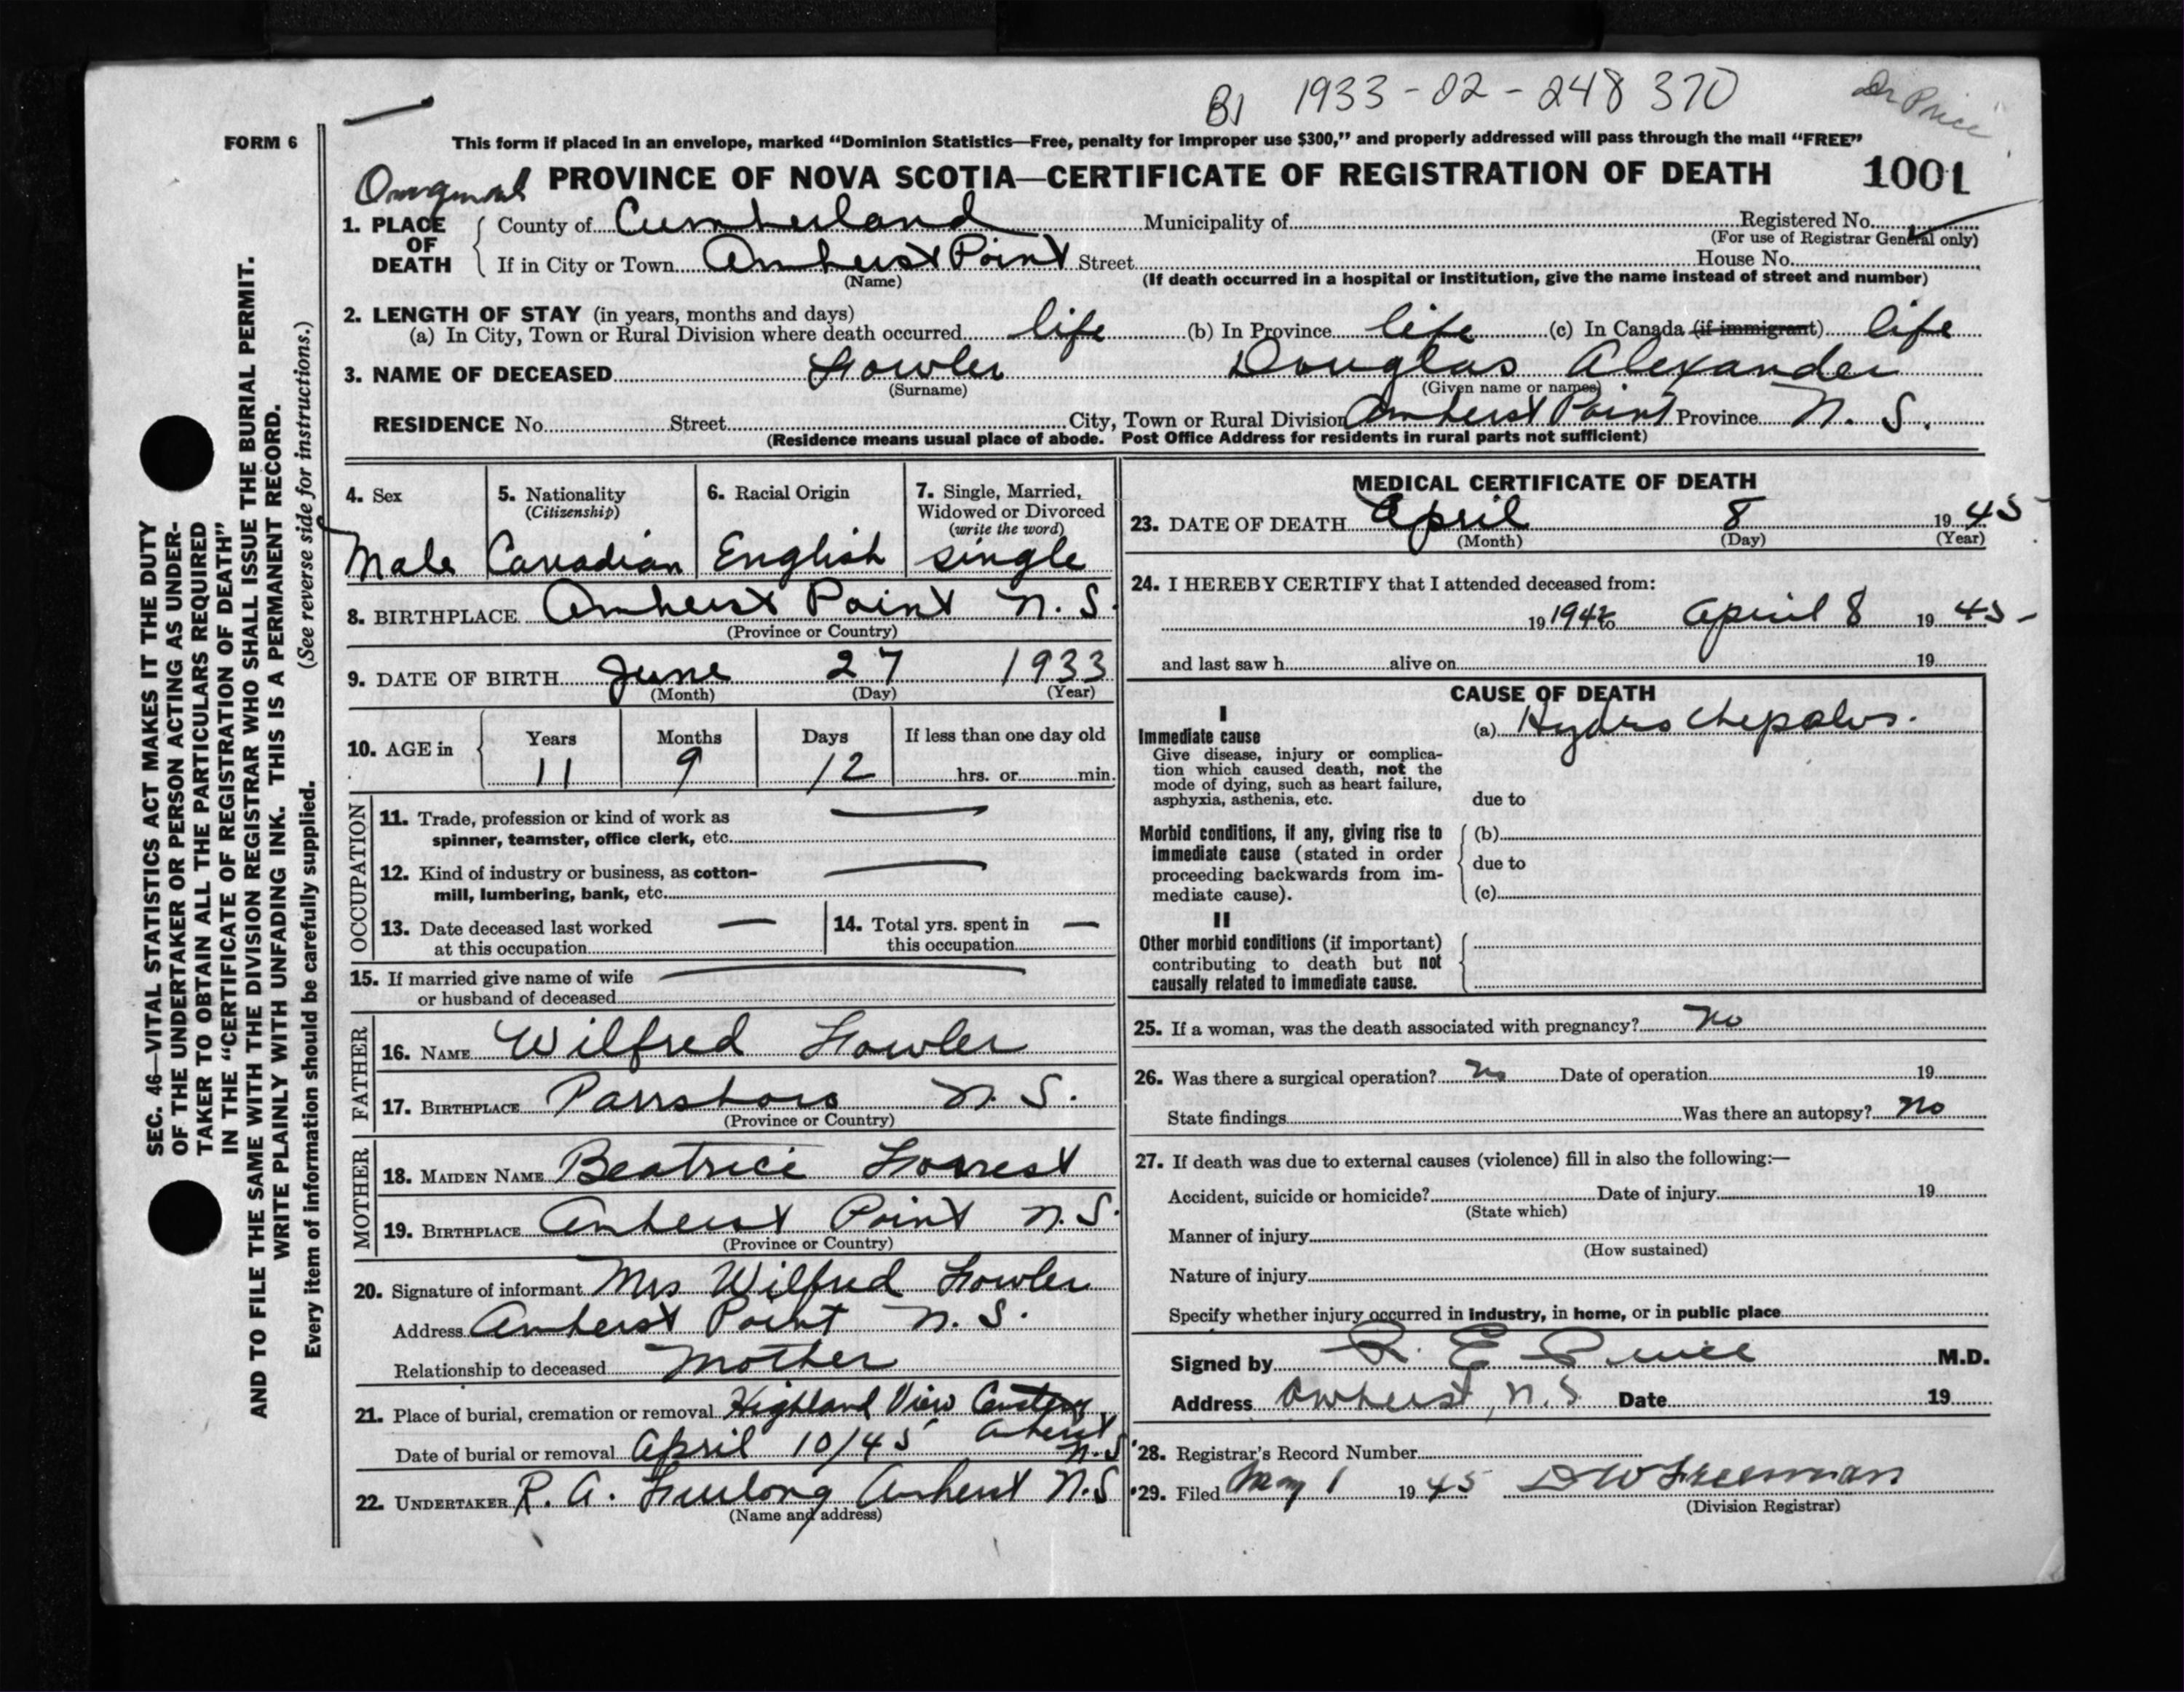 BJ 1933-02-248370
Dr Price
FORM 6
This form if placed in an envelope, marked “Dominion Statistics—Free, penalty for improper use $300,” and properly addressed will pass through the mail “FREE”
Original PROVINCE OF NOVA SCOTIA—CERTIFICATE OF REGISTRATION OF DEATH 1001
1. PLACE OF DEATH
County of Cumberland Municipality of Registered No.
(For use of Registrar General only)
If in City or Town Amherst Point Street House No.
(Name) (If death occurred in a hospital or institution, give the name instead of street and number)
2. LENGTH OF STAY (in years, months and days)
(a) In City, Town or Rural Division where death occurred life (b) In Province life (c) In Canada (if immigrant) life
3. NAME OF DECEASED Fowler Douglas Alexander
(Surname) (Given name or names)
RESIDENCE No. Street City, Town or Rural Division Amherst Point Province N. S.
(Residence means usual place of abode. Post Office Address for residents in rural parts not sufficient)
SEC. 46—VITAL STATISTICS ACT MAKES IT THE DUTY
OF THE UNDERTAKER OR PERSON ACTING AS UNDER-
TAKER TO OBTAIN ALL THE PARTICULARS REQUIRED
IN THE “CERTIFICATE OF REGISTRATION OF DEATH”
AND TO FILE THE SAME WITH THE DIVISION REGISTRAR WHO SHALL ISSUE THE BURIAL PERMIT.
WRITE PLAINLY WITH UNFADING INK. THIS IS A PERMANENT RECORD.
Every item of information should be carefully supplied. (See reverse side for instructions.)
4. Sex 5. Nationality 6. Racial Origin 7. Single, Married,
(Citizenship) Widowed or Divorced
(write the word)
Male Canadian English single
8. BIRTHPLACE Amherst Point N. S.
(Province or Country)
9. DATE OF BIRTH June 27 1933
(Month) (Day) (Year)
10. AGE in Years Months Days If less than one day old
11 9 12 hrs. or min.
OCCUPATION
11. Trade, profession or kind of work as —
spinner, teamster, office clerk, etc.
12. Kind of industry or business, as cotton- —
mill, lumbering, bank, etc.
13. Date deceased last worked — 14. Total yrs. spent in —
at this occupation this occupation
15. If married give name of wife —
or husband of deceased
FATHER
16. NAME Wilfred Fowler
17. BIRTHPLACE Parrsboro N. S.
(Province or Country)
MOTHER
18. MAIDEN NAME Beatrice Forrest
19. BIRTHPLACE Amherst Point N. S.
(Province or Country)
20. Signature of informant Mrs Wilfred Fowler
Address Amherst Point N. S.
Relationship to deceased Mother
21. Place of burial, cremation or removal Highland View Cemetery
Amherst
Date of burial or removal April 10/45 N.S
22. UNDERTAKER R. A. Furlong Amherst N.S
(Name and address)
MEDICAL CERTIFICATE OF DEATH
23. DATE OF DEATH April 8 1945
(Month) (Day) (Year)
24. I HEREBY CERTIFY that I attended deceased from:
19 to April 8 1945
and last saw h alive on 19
CAUSE OF DEATH
I
Immediate cause (a) Hydrochepalus.
Give disease, injury or complica-
tion which caused death, not the
mode of dying, such as heart failure,
asphyxia, asthenia, etc. due to
Morbid conditions, if any, giving rise to (b)
immediate cause (stated in order due to
proceeding backwards from im-
mediate cause). (c)
II
Other morbid conditions (if important)
contributing to death but not
causally related to immediate cause.
25. If a woman, was the death associated with pregnancy? No
26. Was there a surgical operation? No Date of operation 19
State findings Was there an autopsy? No
27. If death was due to external causes (violence) fill in also the following:—
Accident, suicide or homicide? Date of injury 19
(State which)
Manner of injury
(How sustained)
Nature of injury
Specify whether injury occurred in industry, in home, or in public place
Signed by R. E. Price M.D.
Address Amherst, N. S Date 19
28. Registrar's Record Number
29. Filed May 1 1945 D W Freeman
(Division Registrar)